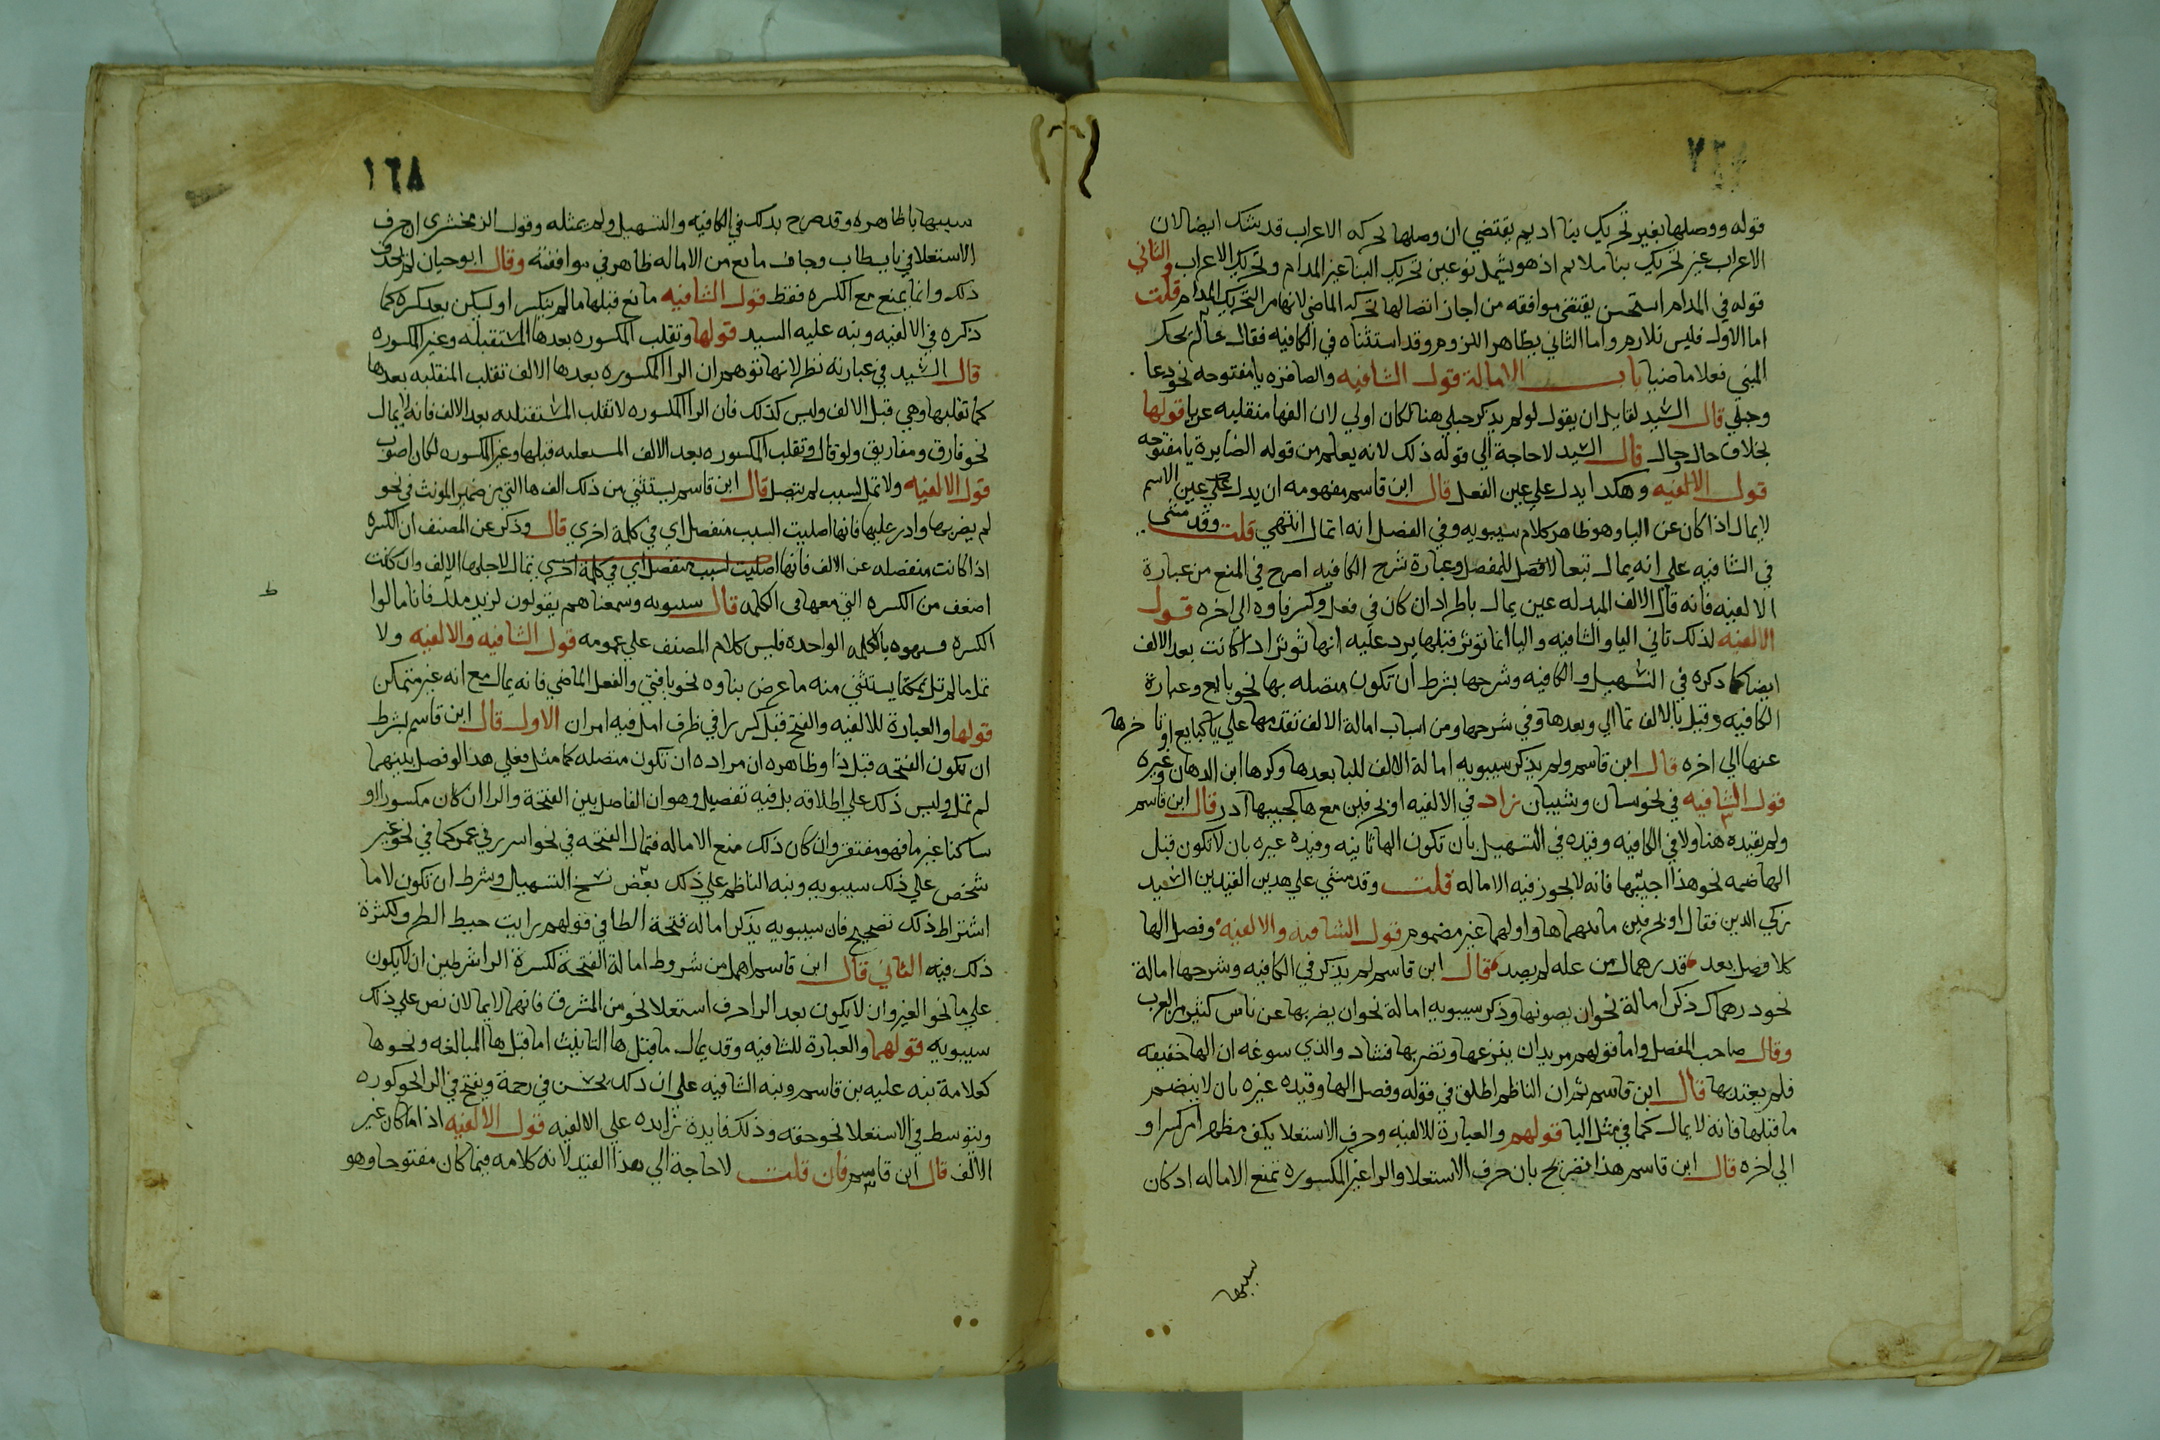 قوله ووصلها بغير تحريك بنا اديم يقتضي ان وصلها بحركه الاعراب قد يشك ايضا لان
الاعراب غير تحريك بنا ملايم اذ هو يشمل نوعين تحريك البنا غير المدام وتحريك الاعراب والثاني
قوله في المدام استحسن يقتضي موافقه من اجاز اتصالها بحركه الماضي لانها من التحريك المدام قلت
اما الاول فليس بلازم واما الثاني بظاهر اللزوم وقد استثناه في الكافيه فقال
المبني فعلا ماضيا باب الامالة قول الشافيه والصائره يا مفتوحه نحو دعا
وحبلي قال السيد لقايل ان يقول لو لم يذكر حبلي هنا لكان اولي لان الفها منقلبه عن يا قولها
بخلاف جال وحال قال السيد لا حاجة الي قوله ذلك لانه يعلم من قوله الصايرة يا مفتوحه
قول الالفيه وهكذا بدل علي عين الفعل قال ابن قاسم مفهومه ان بدل عين الاسم
لا يمال اذا كان عن اليا وهو ظاهر كلام سيبويه وفي الفصل انه اتمال انتهي قلت وقد مشي
في الشافيه علي انه يمال تبعا للمفصل وعبارة شرح الكافيه اصرح في المنع من عبارة
الالفيه فانه قال الالف المبدله عين يمال باطراد ان كان في فعل وكسر فاوه الي اخره قول
الالفيه لذلك تاني اليا والشافيه واليا انما توثر قبلها يرد عليه انها توثر اذا كانت بعد الالف
ايضا كما ذكره في التسهيل والكافيه وشرحها بشرط ان تكون متصله بها نحو بايع وعبارة
الكافيه وقبل يا الالف تمالي وبعدها وفي شرحها ومن اسباب امالة الالف تقدمها علي يا كبايع او تاخرها
عنها الي اخره قال ابن قاسم ولم يذكر سيبويه امالة الالف لليا بعدها وذكرها ابن الدهان وغيره
قول الشافيه في نحو سان وشيبان زاد في الالفيه او بحرفين مع ها كجيبها ادر قال ابن قاسم
ولم يقيده هنا ولا في الكافيه وقيده في التسهيل بان تكون الها ثانيه وقيده غيره بان لا تكون قبل
الها ضمه نحو هذا اجيبها فانه لا يجوز فيه الاماله قلت وقد مشي علي هدين القيدين السيد
زكي الدين فقال او بحرفين ها واولهما غير مضموم قول الشافيه والالفيه وفصل الها
كلا فصل بعد قدرهماك من عله لم يصد قال ابن قاسم لم يذكر في الكافيه وشرحها امالة
نحو درهماك ذكر امالة نحو ان يصونها وذكر سيبويه امالة نحو ان يضربها عن ناس كثير من العرب
وقال صاحب المفصل واما قولهم مريد ان ينزعها وتضربها فشاد والذي سوغه ان الها خفيفه
فلم يعتد بها قال ابن قاسم ثم ان الناظم اطلق في قوله وفصل الها وقيده غيره بان لا ينضم
ما قبلها فانه لا يمال كما في مثل اليا قولهم والعبارة للالفيه وحرف الاستعلا يكف مظهر امن كسر او
الي اخره قال ابن قاسم هذا تصريح بان حرف الاستعلا والرا غير المكسوره تمنع الاماله اذ كان
سببها
١٦٨
سببها يا ظاهره وقد صرح بذلك في الكافيه والتسهيل ولم يمثله وقول الزمخشري ان حرف
الاستعلا في باب طاب وخاف مانع من الاماله ظاهر في موافقته وقال ابو حيان لم نجد
ذلك وانما يمنع مع الكسره فقط قول الشافيه مانع قبلها ما لم ينكسر او يسكن بعد كسره كما
ذكره في الالفيه ونبه عليه السيد قولها وتقلب المكسوره بعدها المستقبله وغير المكسوره
قال السيد في عبارته نظر لانها توهم ان الرا المكسوره بعدها الالف تقلب المنقلبه بعدها
كما تقلبها وهي قبل الالف وليس كذلك فان الرا المكسوره لا تقلب المستقبله بعد الالف فانه لا يمال
نحو فارق ومفاريق ولو قال وتقلب المكسوره بعد الالف المستعليه قبلها وغير المكسوره لكان اصوب
قول الالفيه ولا تمل لسبب لم يتصل قال ابن قاسم يستثني من ذلك الف ها التي من ضمير المونث في نحو
لم يضربها وادر عليها فانها اصليت السبب منفصل اي في كلمة اخري قال وذكر عن المصنف ان الكسره
اذا كانت منفصله عن الالف فانها اصليت لسبب منفصل اي في كلمة اخري تمال لاجلها الالف وان كانت
اضعف من الكسره التي معها في الكلمه قال سيبويه وسمعناهم يقولون لزيد مال فانما مالوا
الكسره فشبهوه بالكلمه الواحده فليس كلام المصنف علي عمومه قول الشافيه والالفيه ولا
تمل ما لم تنل تمكنا يستثني منه ما عرض بناوه نحو يا فتي والفعل الماضي فانه يمال مع انه غير متمكن
قولها والعبارة للالفيه والفتح قبل كسر را في طرف امل فيه امران الاول قال ابن قاسم بشرط
ان تكون الفتحه قبل ذا وظاهره ان مراده ان تكون متصله كما مثل فعلي هذا لو فصل بينهما
لم تمل وليس ذلك علي اطلاقه بل فيه تفصيل وهو ان الفاصل بين الفتحة والرا ان كان مكسورا او
ساكنا غير يا فهو مفتقر وان كان ذلك منع الاماله فتمال الفتحه في نحو اسرر وفي عمر كما في نحو غير
شخص علي ذلك سيبويه ونبه الناظم علي ذلك بعض نسخ التسهيل وشرط ان تكون لاما
اشتراط ذلك تصحيح فان سيبويه يذكر امالة فتحة الطا في قولهم رايت خبط الطر ولكثرة
ذلك فيه الثاني قال ابن قاسم اهمل من شروط امالة الفتحة لكسرة الرا شرطين ان لا يكون
علي ما نحو الغير وان لا يكون بعد الرا حرف استعلا نحو من المشرق فانهما لا يمالان نص علي ذلك
سيبويه قولهما والعبارة للشافيه وقد يمال ما قبل ها التانيث اما قبل ها المبالغه ونحوها
كعلامة نبه عليه بن قاسم ونبه الشافيه علي ان ذلك يحسن في رحمة ويقبح في الرا نحو كوره
ويتوسط في الاستعلا نحو حقه وذلك فايدة زايده علي الالفيه قول الالفيه اذا ما كان غير
الالف قال ابن قاسم فان قلت لا حاجة الي هذا القيد لانه كلامه فيما كان مفتوحا وهو
ط